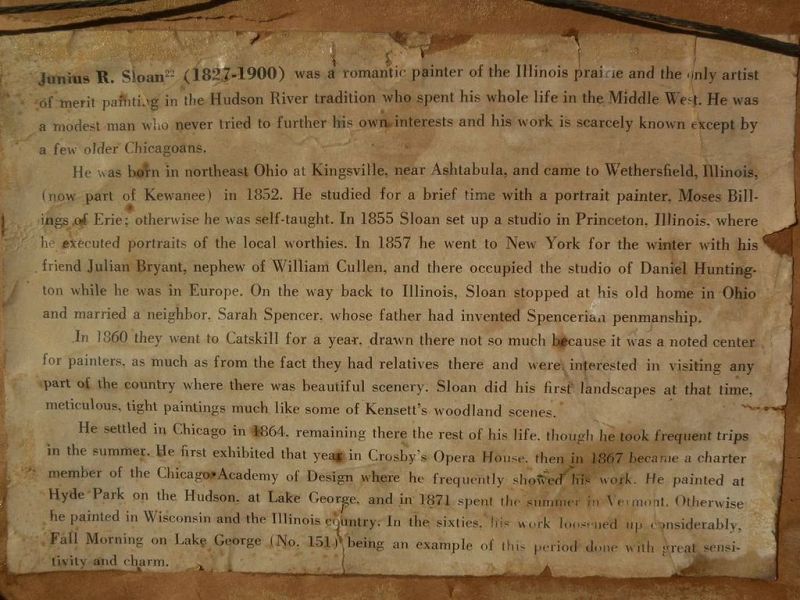 Junius R. Sloan²² (1827-1900) was a romantic painter of the Illinois prairie and the only artist
of merit painting in the Hudson River tradition who spent his whole life in the Middle West. He was
a modest man who never tried to further his own interests and his work is scarcely known except by
a few older Chicagoans.
He was born in northeast Ohio at Kingsville, near Ashtabula, and came to Wethersfield, Illinois,
(now part of Kewanee) in 1852. He studied for a brief time with a portrait painter, Moses Bill-
ings of Erie; otherwise he was self-taught. In 1855 Sloan set up a studio in Princeton, Illinois, where
he executed portraits of the local worthies. In 1857 he went to New York for the winter with his
friend Julian Bryant, nephew of William Cullen, and there occupied the studio of Daniel Hunting-
ton while he was in Europe. On the way back to Illinois, Sloan stopped at his old home in Ohio
and married a neighbor, Sarah Spencer, whose father had invented Spencerian penmanship.
In 1860 they went to Catskill for a year, drawn there not so much because it was a noted center
for painters, as much as from the fact they had relatives there and were interested in visiting any
part of the country where there was beautiful scenery. Sloan did his first landscapes at that time,
meticulous, tight paintings much like some of Kensett's woodland scenes.
He settled in Chicago in 1864, remaining there the rest of his life, though he took frequent trips
in the summer. He first exhibited that year in Crosby's Opera House, then in 1867 became a charter
member of the Chicago Academy of Design where he frequently showed his work. He painted at
Hyde Park on the Hudson, at Lake George, and in 1871 spent the summer in Vermont. Otherwise
he painted in Wisconsin and the Illinois country. In the sixties, his work loosened up considerably,
Fall Morning on Lake George (No. 151) being an example of this period done with great sensi-
tivity and charm.